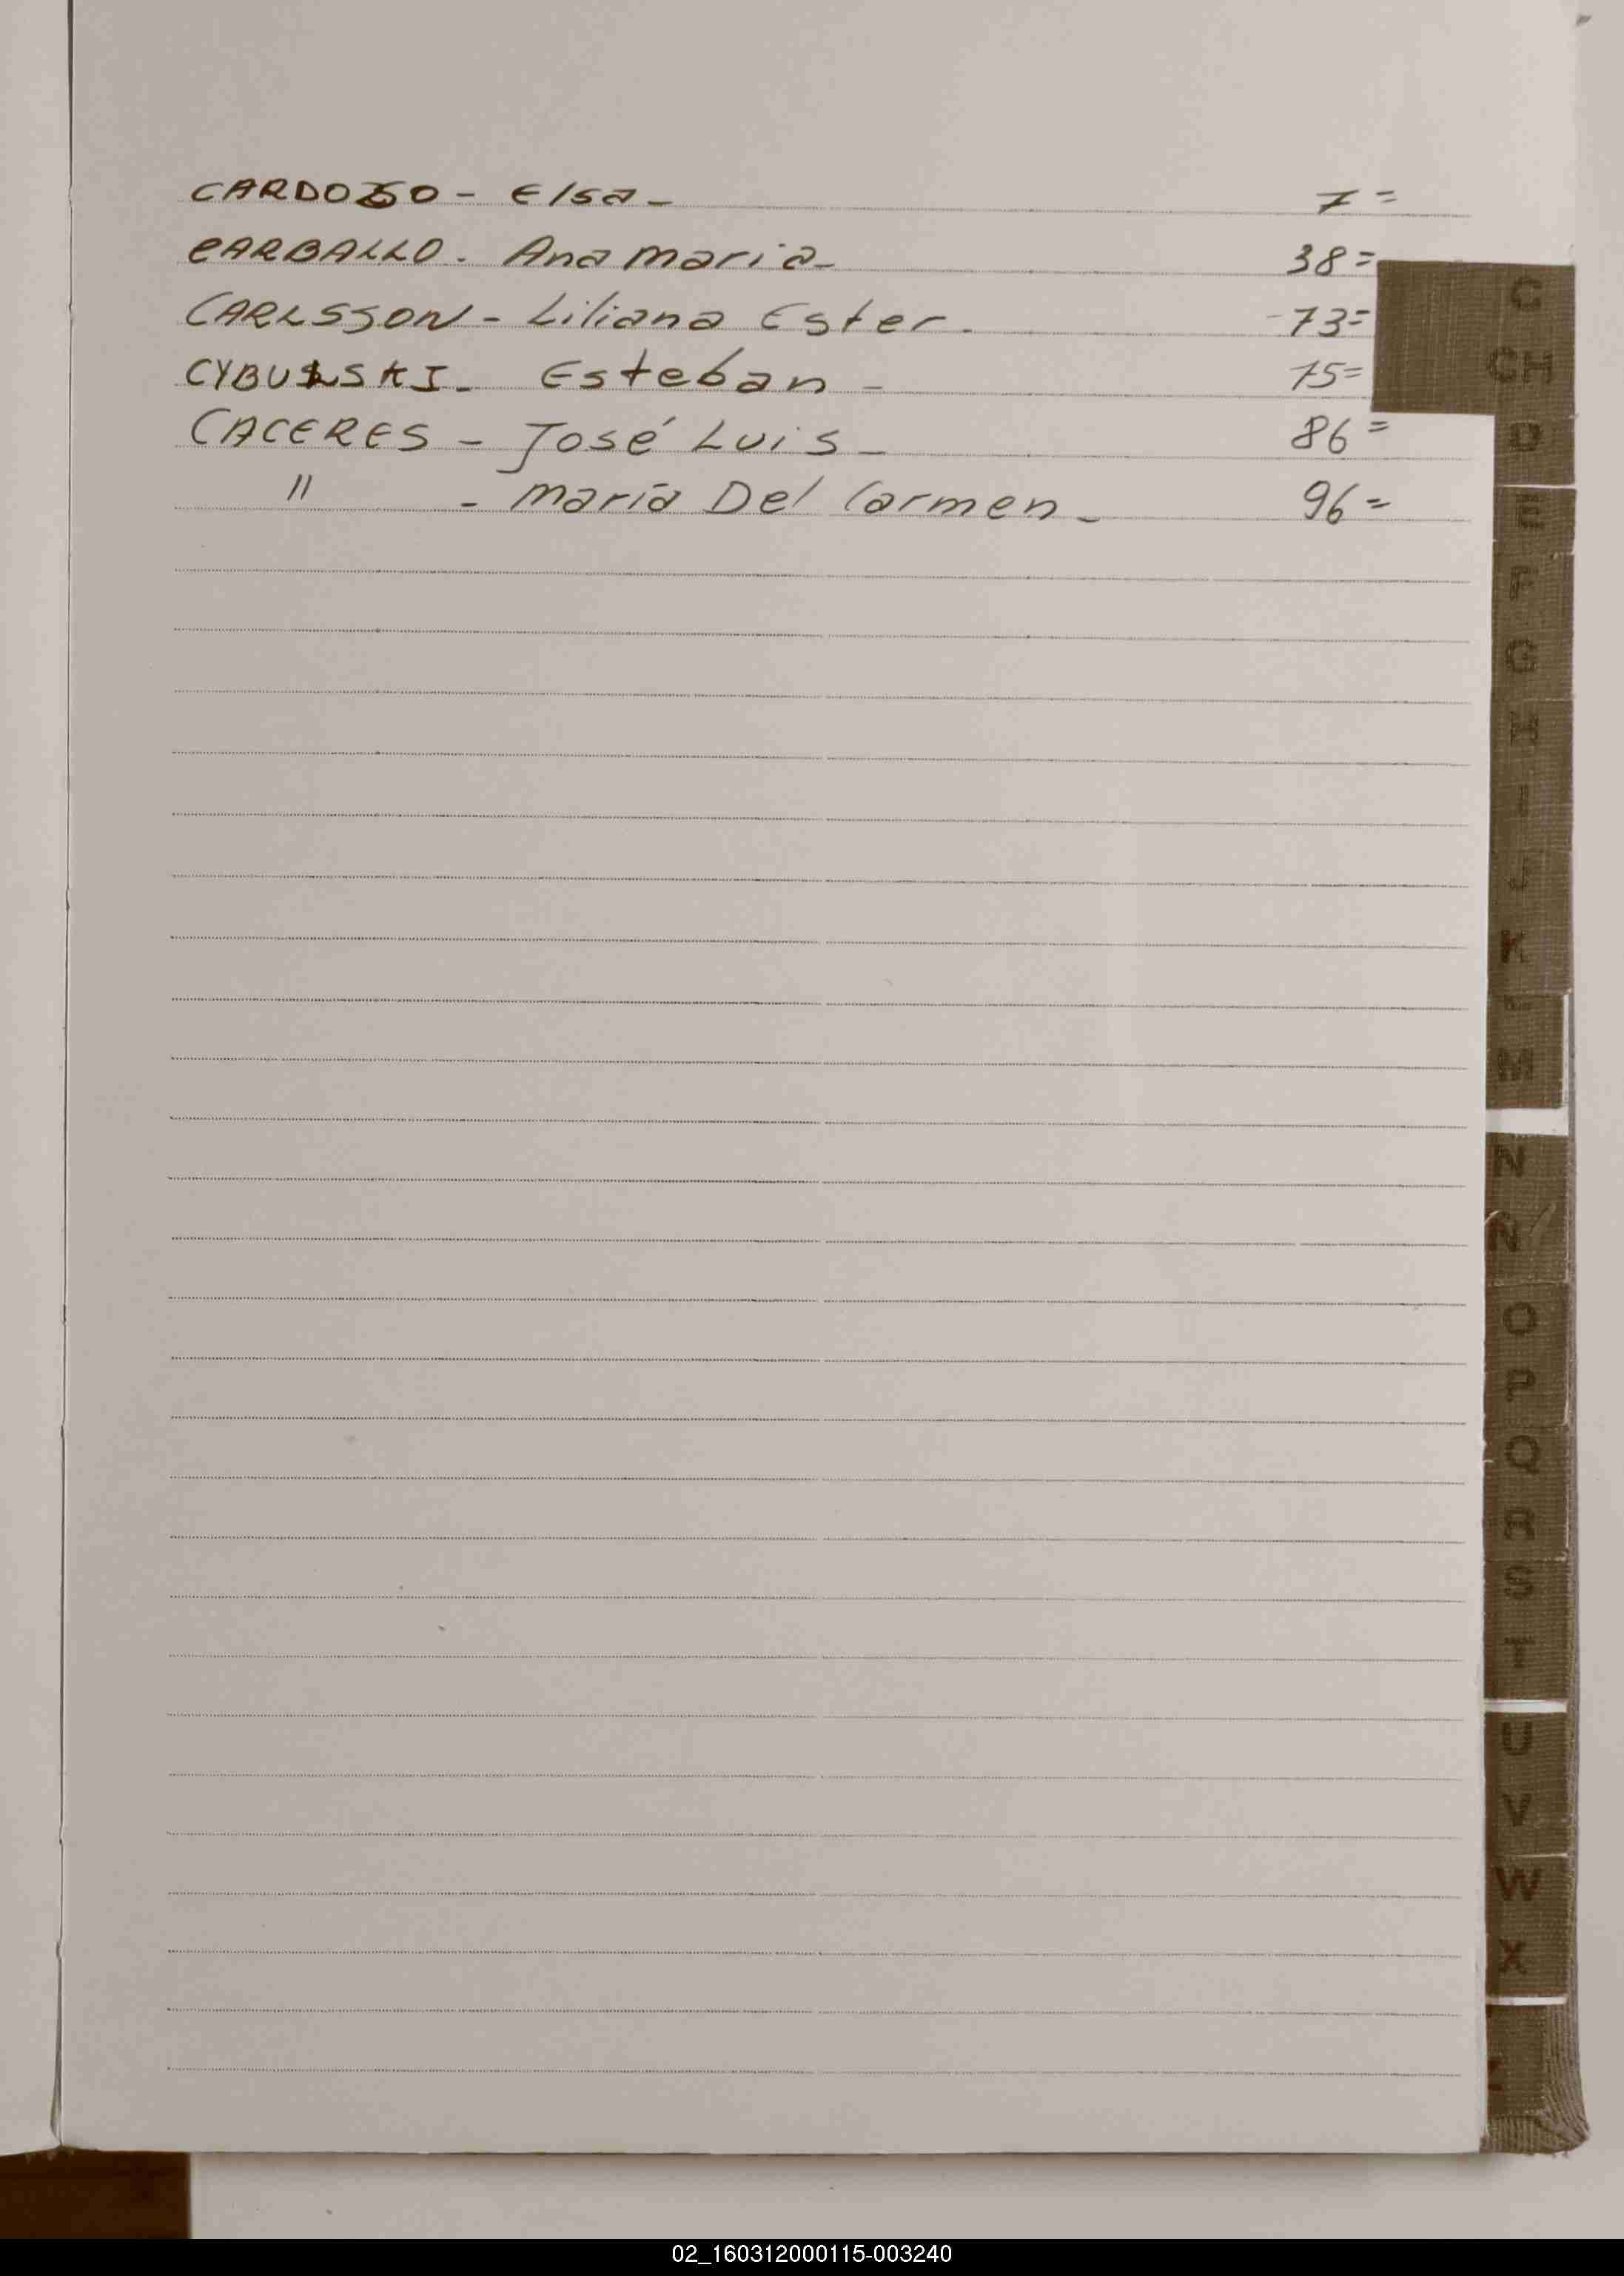 CARDOZO - Elsa - 7=
CARBALLO. Ana maria - 38=
CARLSSON - Liliana Ester. 73=
CYBULSKI - Esteban - 75=
CACERES - José Luis - 86=
" - maría Del Carmen - 96=
C
CH
D
E
F
G
H
I
J
K
L
M
N
Ñ
O
P
Q
R
S
T
U
V
W
X
02_160312000115-003240